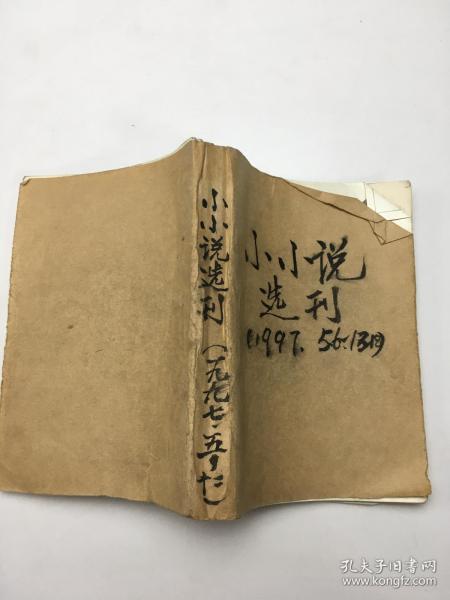 小小说选刊
(一九九七·五
小小说
选刊
(1997.
孔夫子旧书网
www.kongfz.com